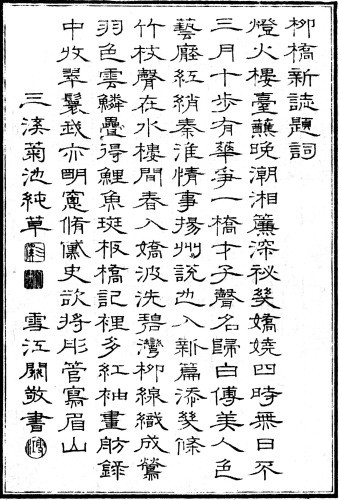 柳橋新誌題詞
燈火樓臺蘸晚潮湘簾深祕幾嬌嬈四時無日不
三月十步有華爭一橋才子聲名歸白傅美人色
藝壓紅綃秦淮情事揚州說也入新篇添幾條
竹枝聲在水樓間春入嬌波洗碧灣柳線織成鶯
羽色雲鱗疊得鯉魚斑板橋記裡多紅袖畫舫錄
中收翠鬟我亦明窻脩儷史欲將彤管寫眉山
三溪菊池純草 雪江關敬書